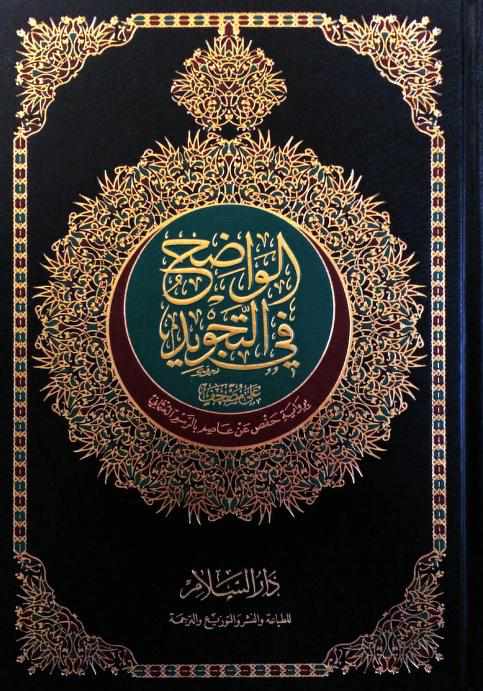 الوَاضِحُ
في التَّجْوِيد
عَلى مُصْحَفٍ
برِوَايَةِ حَفْصٍ عَنْ عَاصِمٍ بِالرَّسْمِ العُثْمَانِيّ
دَارُ السَّلَامِ
للطباعة والنشر والتوزيع والترجمة